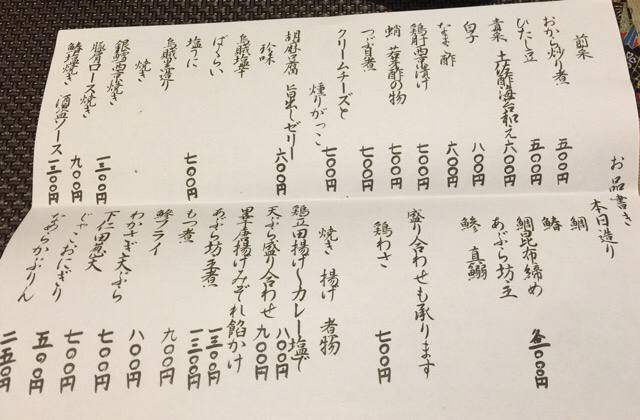 お品書き
前菜
おから炒り煮 五〇〇円
ひたし豆 五〇〇円
青菜 土佐酢海苔和え 六〇〇円
白子 八〇〇円
なまこ酢 六〇〇円
鶏肝西京漬け 七〇〇円
蛸 葉山葵酢の物 七〇〇円
つぶ貝煮 七〇〇円
クリームチーズと
燻りがっこ 七〇〇円
胡麻豆腐 旨出しゼリー 六〇〇円
珍味
烏賊塩辛
ばくらい
塩うに 七〇〇円
烏賊沖造り
焼き
銀鱈西京焼き 一三〇〇円
豚肩ロース焼き 九〇〇円
鰆塩焼き 酒盗ソース 一三〇〇円
本日造り
鯛
鰆
鯛昆布締め
あぶら坊主
鯵 真鰯
各一〇〇〇円
盛り合わせも承ります
鶏わさ 七〇〇円
焼き 揚げ 煮物
鶏立田揚げ〜カレー塩で 八〇〇円
天ぷら盛り合わせ 九〇〇円
唐揚げみぞれ餡かけ
あぶら坊主煮 一三〇〇円
もつ煮
鯵フライ 九〇〇円
わかさぎ天ぷら 八〇〇円
下仁田葱天 七〇〇円
じゃこおにぎり 五〇〇円
なめらかぷりん 二五〇円